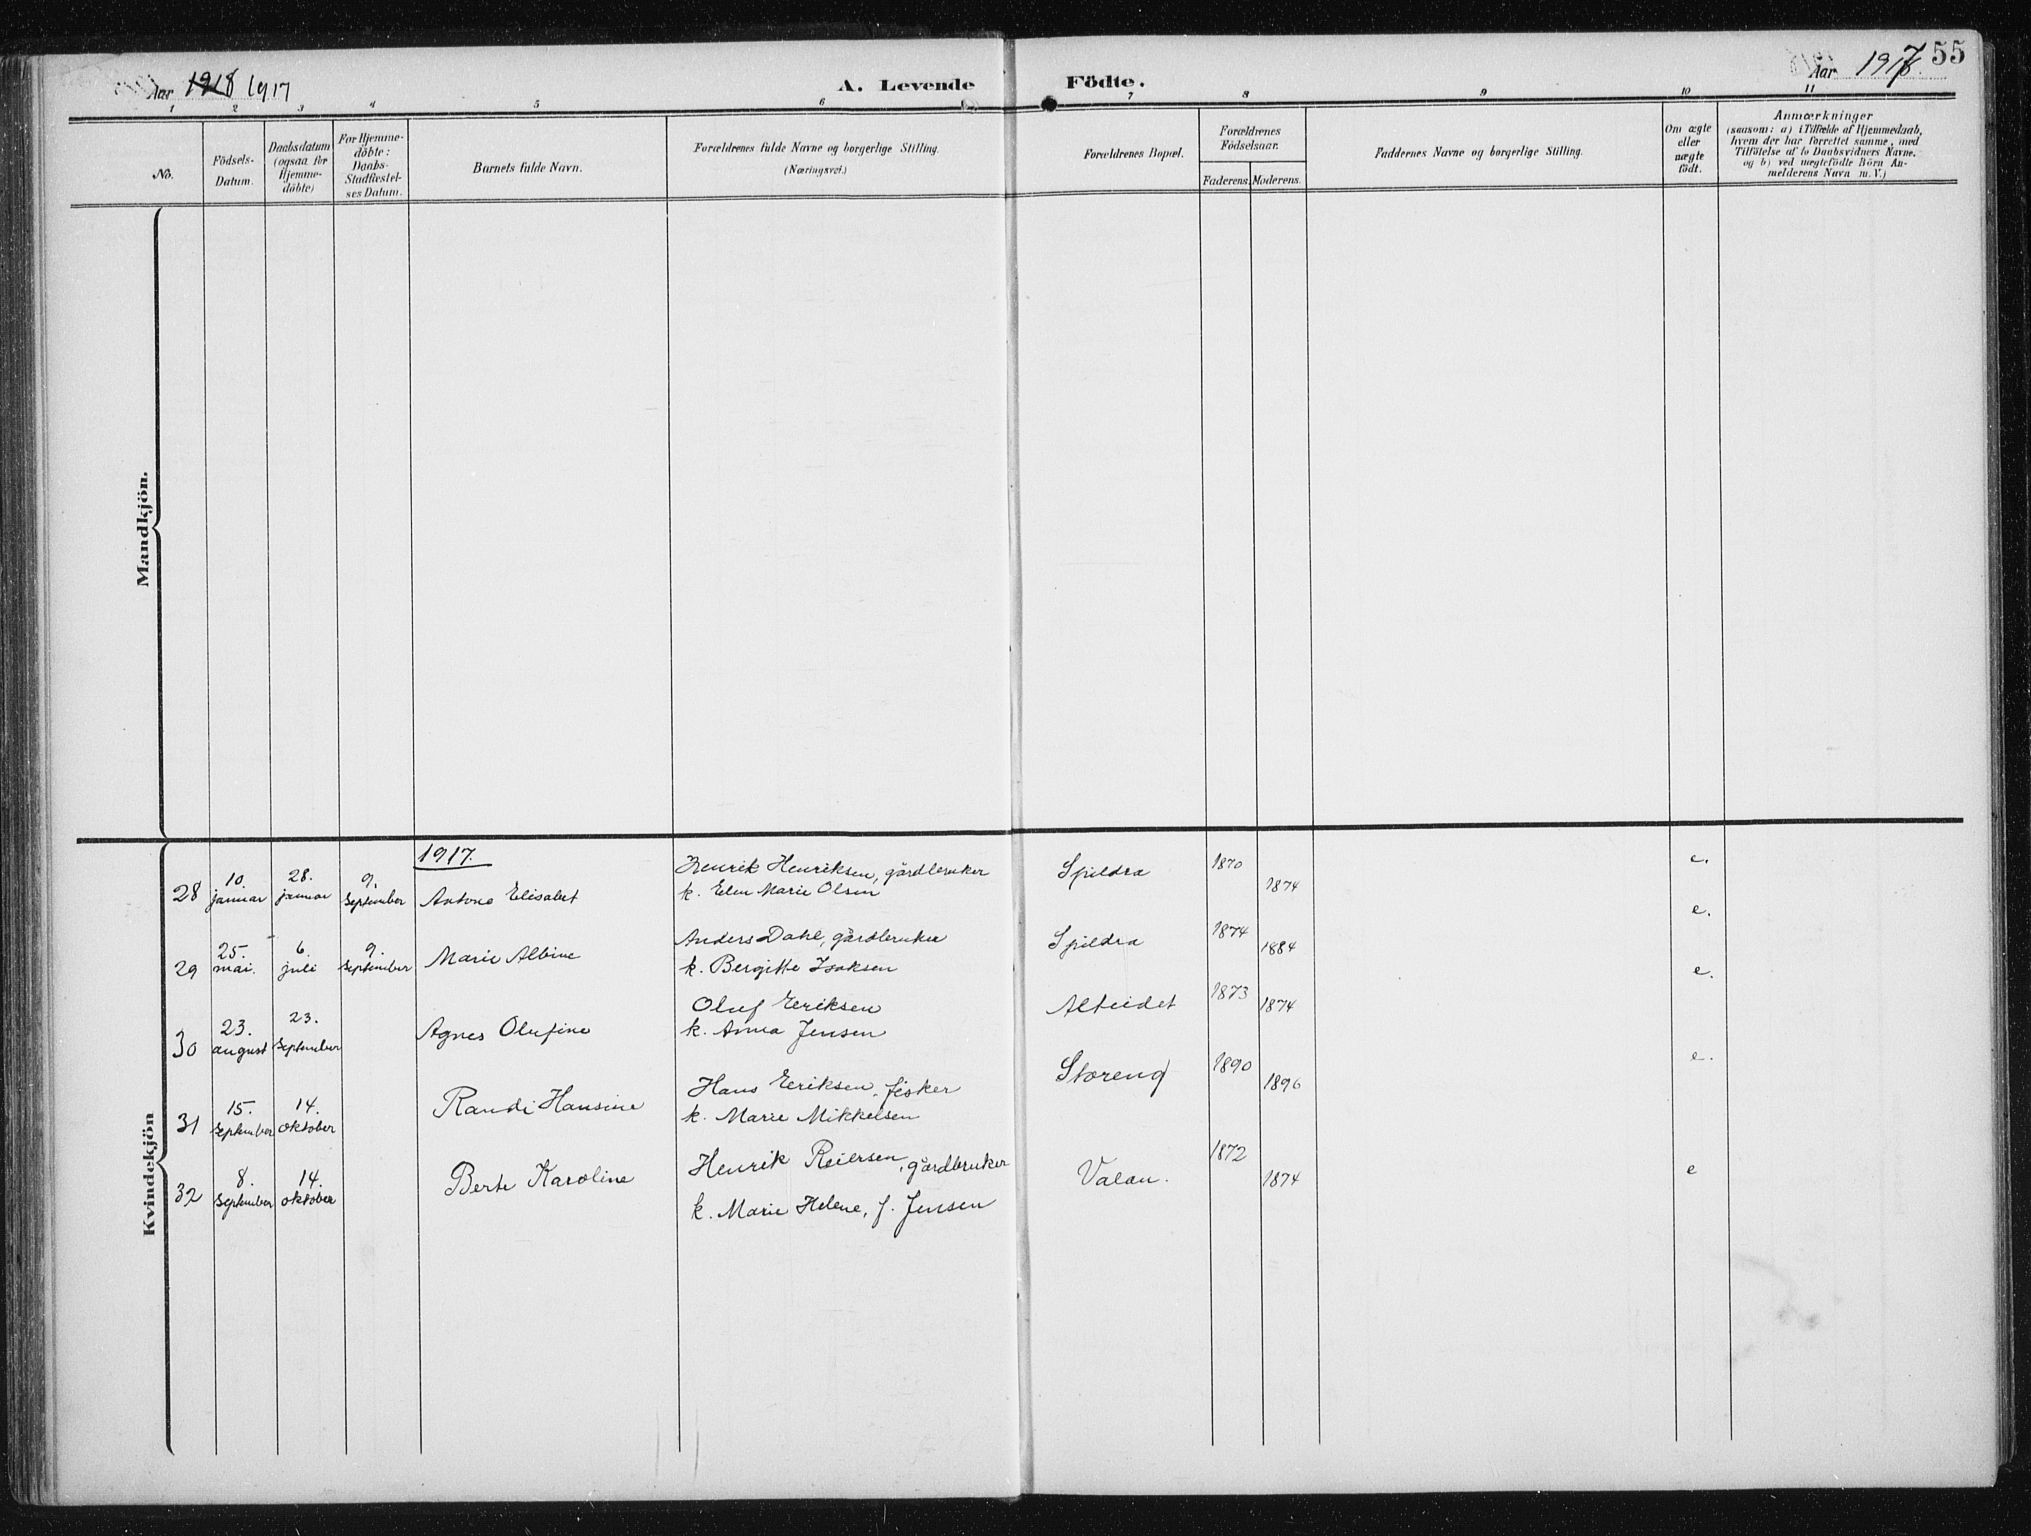 Aar 1918 1917
A. Levende Födte.
Aar 1917. 55
1 2 3 4 5 6 7 8 9 10 11
No.
Födsels-
Datum.
Daabsdatum
(ogsaa for
Hjemme-
döbte)
For Hjemme-
döbte:
Daabs-
Stadfæstel-
ses Datum.
Barnets fulde Navn.
Forældrenes fulde Navne og borgerlige Stilling.
(Næringsvei.)
Forældrenes Bopæl.
Forældrenes
Födselsaar.
Faderens. Moderens.
Faddernes Navne og borgerlige Stilling.
Om ægte
eller
uægte
födt.
Anmærkninger
(saasom: a) i Tilfælde af Hjemmedaab,
hvem der har forrettet samme, med
Tilföielse af to Daabsvidners Navne,
og b) ved uægtefödte Börn An-
melderens Navn m. V.)
Mandkjön.
Kvindekjön
1917.
28 10. januar 28. januar 9. September Antone Elisabet Henrik Henriksen, gårdbruker Spildra 1870 e.
k. Elen Marie Olsen 1874
29 25. mai. 6. juli 9. September Marie Albine Anders Dahl, gårdbruker Spildra 1874 e.
k. Bergitte Isaksen 1884
30 23. august 23. September Agnes Olufine Oluf Eeriksen Alteidet 1873 e.
k. Anna Jensen 1874
31 15. September 14. oktober Randi Hansine Hans Eeriksen, fisker Storeng 1890 e.
k. Marie Mikkelsen 1896
32 8. September 14. oktober Berte Karoline Henrik Reiersen, gårdbruker Valan. 1872 e
k. Marie Helene, f. Jensen 1874